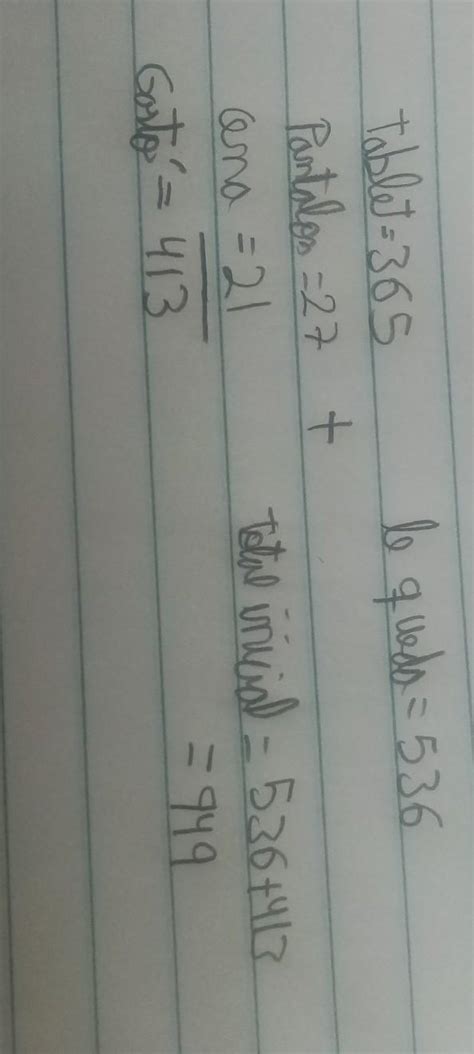 Tablet = 365
Pantalon = 27 +
cena = 21
Gasto = 413
le queda = 536
Total inicial = 536+413
= 949